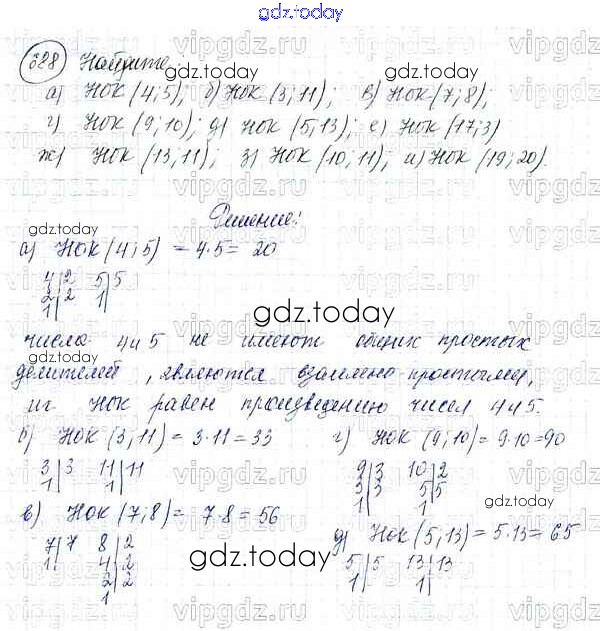 gdz.today
688 Найдите
а) НОК (4; 5); б) НОК (3; 11); в) НОК (7; 8);
г) НОК (9; 10); д) НОК (5, 13); е) НОК (17; 3)
ж) НОК (13, 11); з) НОК (10; 11); и) НОК (19; 20).
Решение:
а) НОК (4; 5) = 4·5 = 20
4|2 5|5
2|2 1|
1|
числа 4 и 5 не имеют общих простых
делителей, являются взаимно-простыми,
их НОК равен произведению чисел 4 и 5.
б) НОК (3, 11) = 3·11 = 33
3|3 11|11
1| 1|
в) НОК (7; 8) = 7·8 = 56
7|7 8|2
1| 4|2
2|2
1|
г) НОК (9; 10) = 9·10 = 90
9|3 10|2
3|3 5|5
1| 1|
д) НОК (5, 13) = 5·13 = 65
5|5 13|13
1| 1|
gdz.today
gdz.today
gdz.today
gdz.today
gdz.today
gdz.today
gdz.today
vipgdz.ru